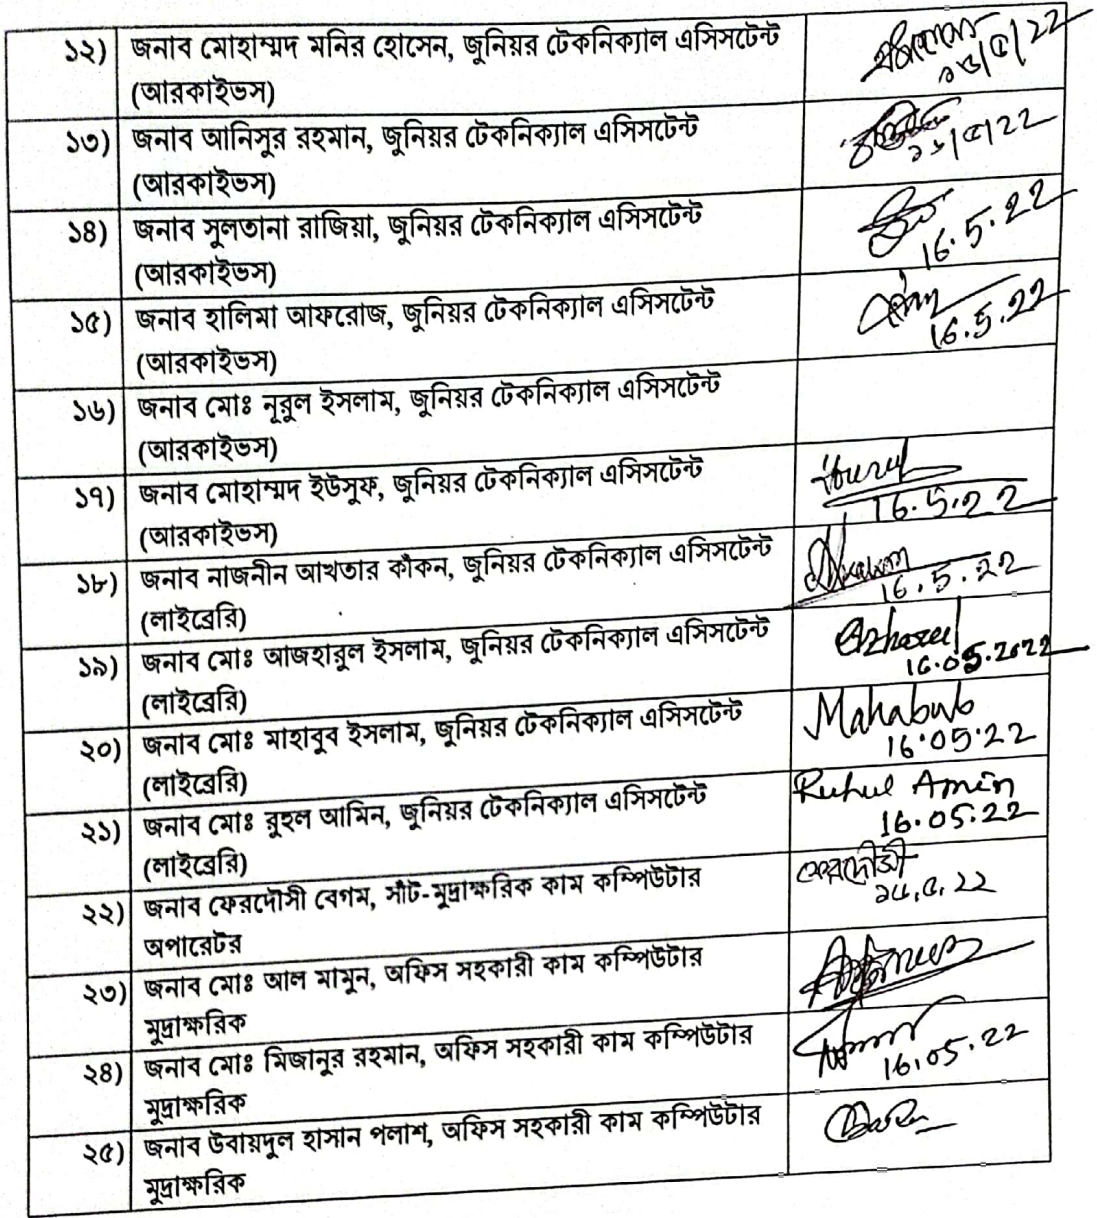 ১২) জনাব মোহাম্মদ মনির হোসেন, জুনিয়র টেকনিক্যাল এসিসটেন্ট
(আরকাইভস)
১৬/৫/22
১৩) জনাব আনিসুর রহমান, জুনিয়র টেকনিক্যাল এসিসটেন্ট
(আরকাইভস)
১৬/৫/22
১৪) জনাব সুলতানা রাজিয়া, জুনিয়র টেকনিক্যাল এসিসটেন্ট
(আরকাইভস)
16.5.22
১৫) জনাব হালিমা আফরোজ, জুনিয়র টেকনিক্যাল এসিসটেন্ট
(আরকাইভস)
16.5.22
১৬) জনাব মোঃ নূরুল ইসলাম, জুনিয়র টেকনিক্যাল এসিসটেন্ট
(আরকাইভস)
১৭) জনাব মোহাম্মদ ইউসুফ, জুনিয়র টেকনিক্যাল এসিসটেন্ট
(আরকাইভস)
16.5.22
১৮) জনাব নাজনীন আখতার কাঁকন, জুনিয়র টেকনিক্যাল এসিসটেন্ট
(লাইব্রেরি)
16.5.22
১৯) জনাব মোঃ আজহারুল ইসলাম, জুনিয়র টেকনিক্যাল এসিসটেন্ট
(লাইব্রেরি)
16.05.2022
২০) জনাব মোঃ মাহাবুব ইসলাম, জুনিয়র টেকনিক্যাল এসিসটেন্ট
(লাইব্রেরি)
Mahabub
16.05.22
২১) জনাব মোঃ রুহুল আমিন, জুনিয়র টেকনিক্যাল এসিসটেন্ট
(লাইব্রেরি)
Ruhul Amin
16.05.22
২২) জনাব ফেরদৌসী বেগম, সাঁট-মুদ্রাক্ষরিক কাম কম্পিউটার
অপারেটর
ফেরদৌসী
১৬.৫.২২
২৩) জনাব মোঃ আল মামুন, অফিস সহকারী কাম কম্পিউটার
মুদ্রাক্ষরিক
২৪) জনাব মোঃ মিজানুর রহমান, অফিস সহকারী কাম কম্পিউটার
মুদ্রাক্ষরিক
16.05.22
২৫) জনাব উবায়দুল হাসান পলাশ, অফিস সহকারী কাম কম্পিউটার
মুদ্রাক্ষরিক